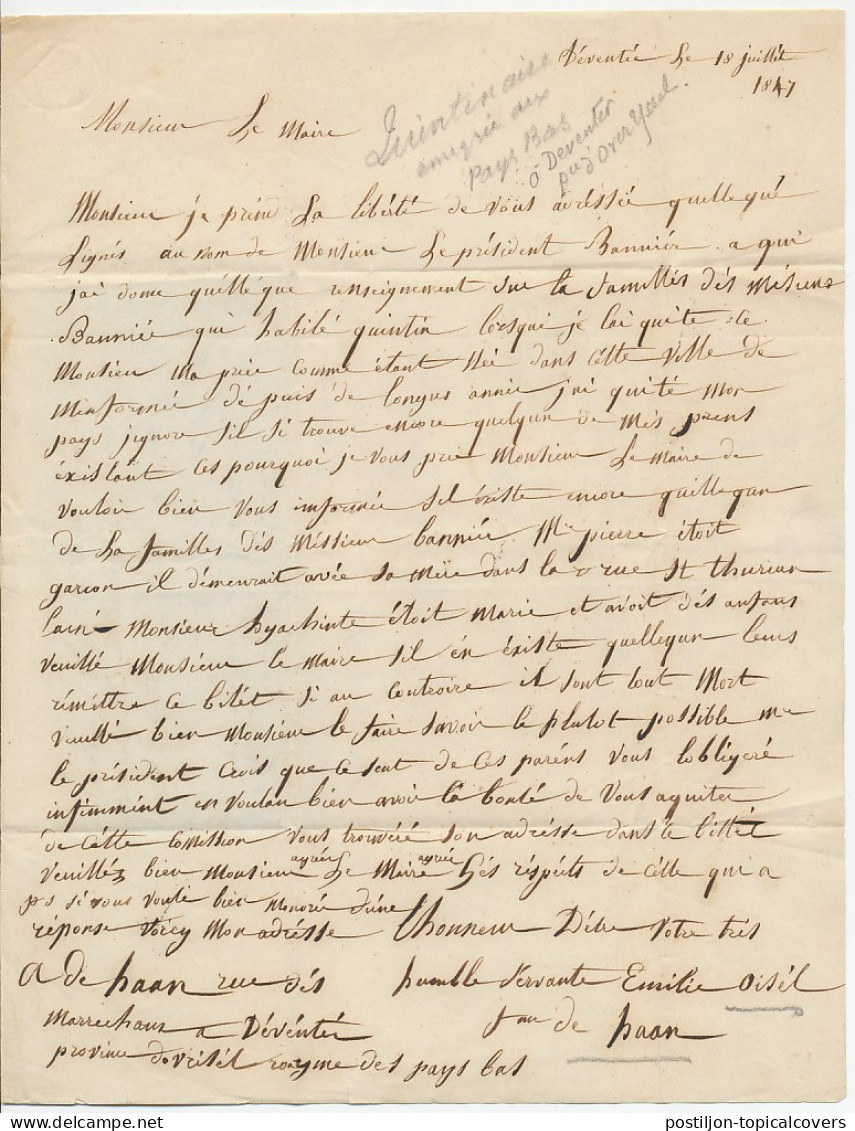 Déventée Le 18 juillét
1847
Quintinaise
émigrée aux
Pays Bas
à Deventer
pce d'Over Yssel.
Monsieur Le Maire
Monsieur je prend La libérté de vous adréssée quelleque
Lignés au nom de Monsieur Le président Banniée a qui
jai donne quélléque renseignement sur la famillés dés Mésieurs
Banniée qui habité quintin lorsque je lai quité ce
Monsieur ma priée comme étant Née dans Cétte ville de
Minformée dépuis de longus année jai quité mon
pays jignore sil si trouve encore quelqun de més prens
éxistant ces pourquoi je vous prie Monsieur Le Maire de
vouloir bien vous informée sil éxiste encore quellequn
de La famillés dés Méssieur banniée Mr pierre étoit
garcon il démeurait avée sa mére dans la rue St thurian
lainé Monsieur hyachinte étoit Marie et avoit dés anfans
veuillé Monsieur le Maire sil én éxiste quellequn leurs
rémittre ce bilét si au Contraire il sont tout Mort
veuillé bien Monsieur le faire savoir le plutot possible Mr
le président Crois que ce sont de ces parénts vous lobligéré
infinment en voulan bien avoir la bonté de vous aquiter
de cétte Comission vous trouvéré son adrésse dans le billét
veuilléz bien Monsieur Le Maire agrée Lés réspécts de célle qui a
ps si vous voulé bien Monoré dune
réponse Voicy Mon adrésse Lhonneur Détre Votre trés
A de haan rue dés humble Servante Emilie Oisél
Marrechaux a Dévénter fau de haan
province dovérisél royme des pays bas
postiljon-topicalcovers